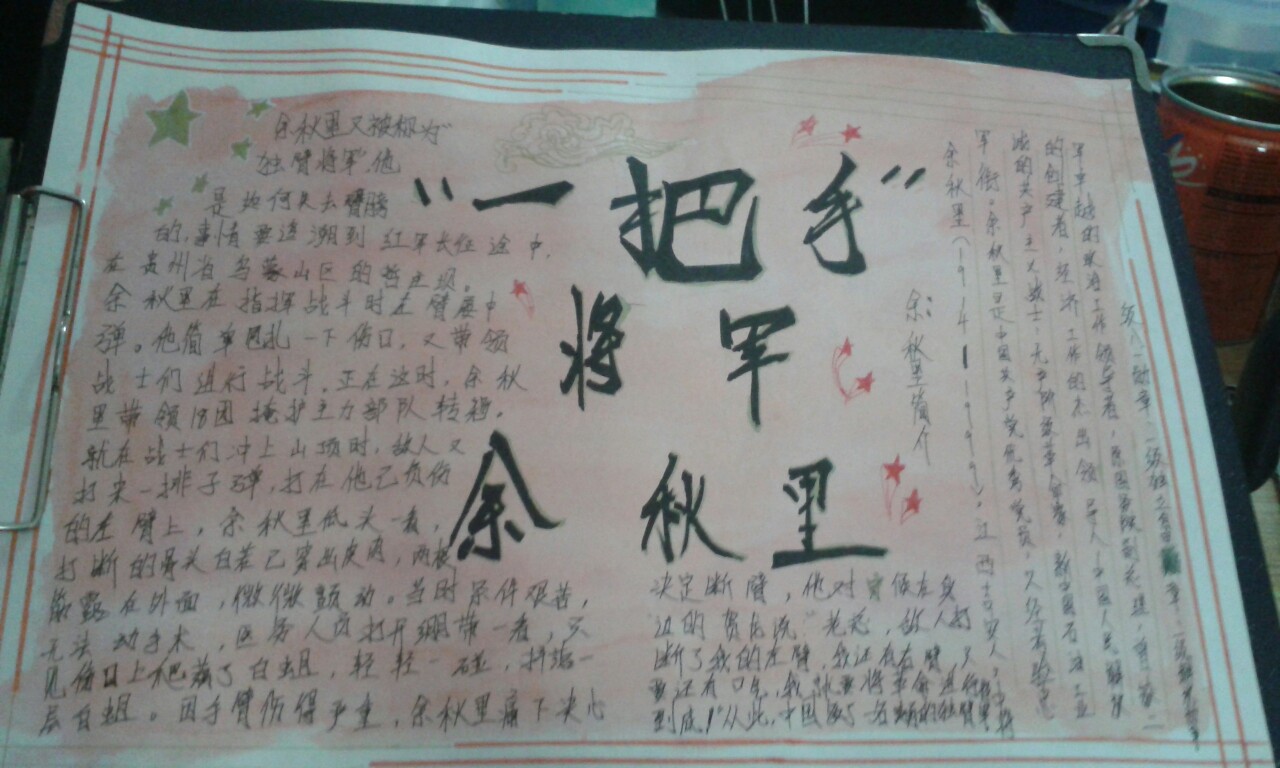 “一把手”
将军
余秋里
余秋里又被称为“
独臂将军”,他
是如何失去臂膀
的,事情要追溯到红军长征途中,
在贵州省乌蒙山区的哲庄坝。
余秋里在指挥战斗时左臂屡中
弹。他简单包扎一下伤口,又带领
战士们进行战斗。正在这时,余秋
里带领18团掩护主力部队转移。
就在战士们冲上山顶时,敌人又
打来一排子弹,打在他已负伤
的左臂上,余秋里低头一看,
打断的骨头白茬已穿出皮肉,两根
筋露在外面,微微颤动。当时条件艰苦,
无法动手术,医务人员打开绷带一看,只
见伤口上爬满了白蛆,轻轻一碰,抖落一
层白蛆。因手臂伤得严重,余秋里痛下决心
决定断臂,他对守候在身
边的贺长说“老总,敌人打
断了我的左臂,我还有右臂,只
要还有口气,我就要将革命进行
到底!”从此,中国多了一名独臂将军
余秋里简介
余秋里(1914—1999),江西吉安人,
军衔。余秋里是中国共产党优秀党员,久经考验忠
诚的共产主义战士,无产阶级革命家,新中国石油工业
的创建者,经济工作的杰出领导人,中国人民解放
军卓越的政治工作领导者,原国务院副总理,
级八一勋章,二级独立自由勋章,一级解放勋章